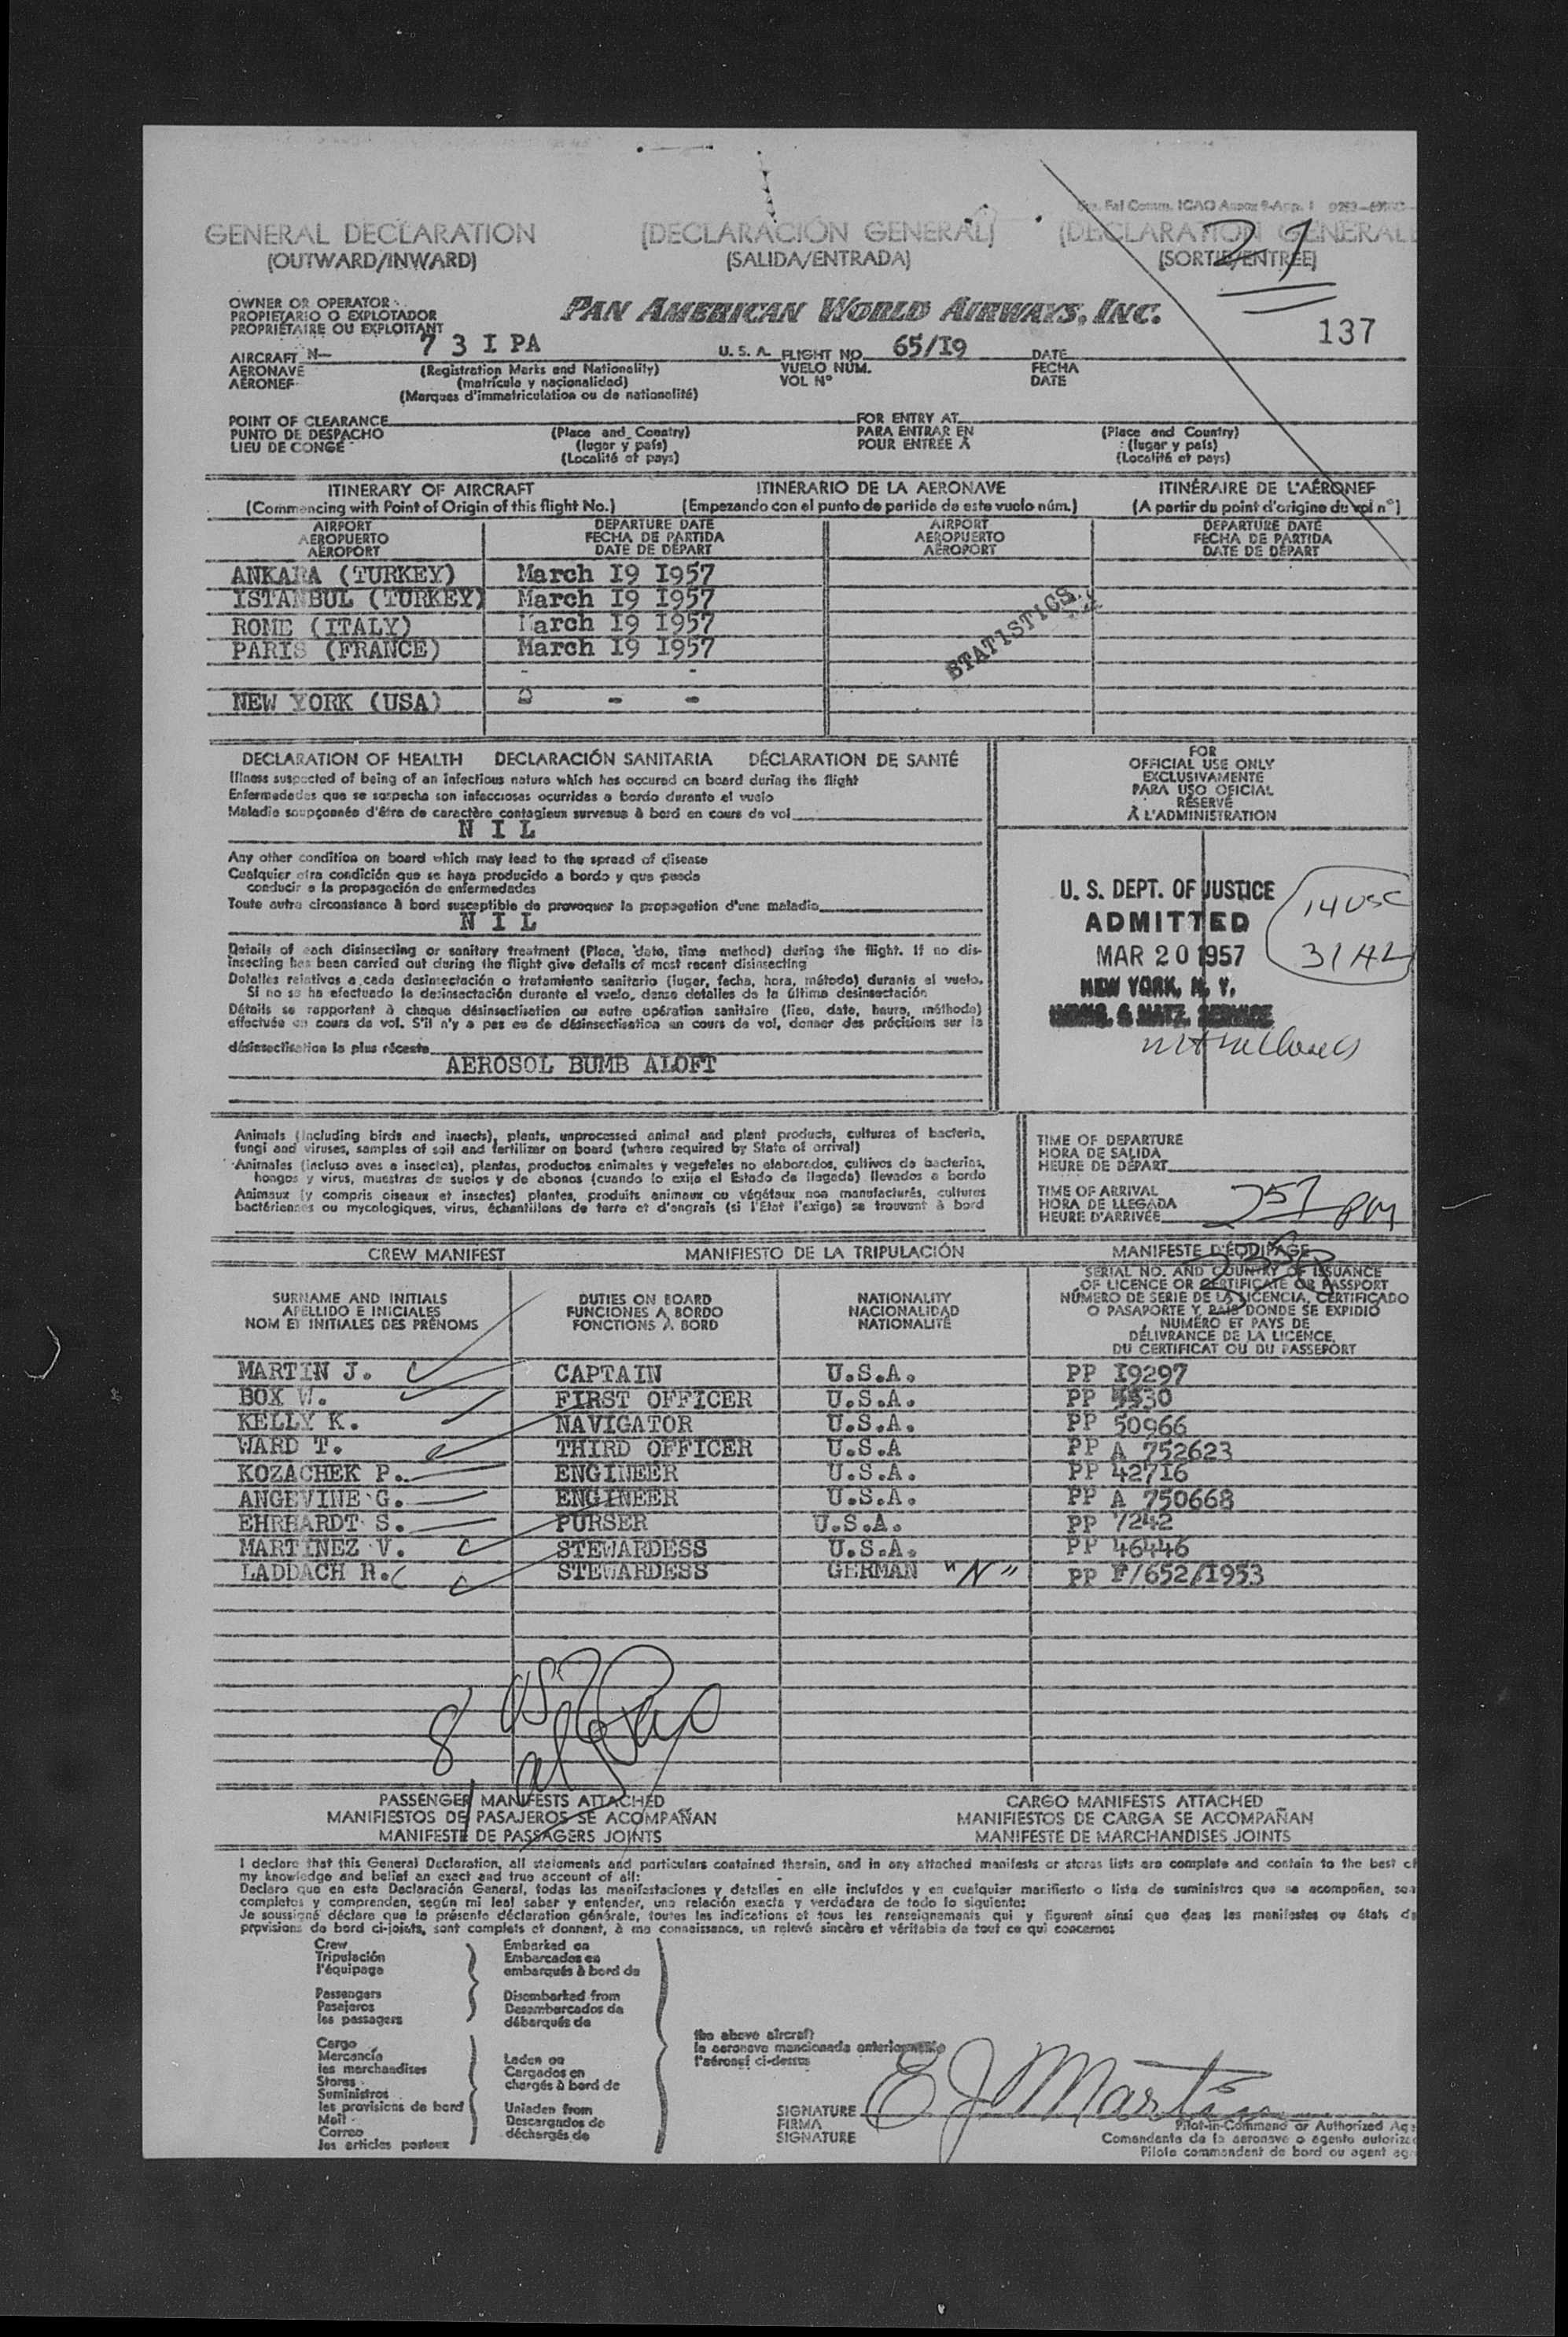 GENERAL DECLARATION (DECLARACIÓN GENERAL) (DECLARATION GENERALE
(OUTWARD/INWARD) (SALIDA/ENTRADA) (SORTIE/ENTRÉE)
21
OWNER OR OPERATOR
PROPIETARIO O EXPLOTADOR
PROPRIÉTAIRE OU EXPLOITANT
PAN AMERICAN WORLD AIRWAYS, INC.
137
AIRCRAFT N— 7 3 I PA U. S. A. FLIGHT NO. 65/I9 DATE
AERONAVE (Registration Marks and Nationality) VUELO NÚM. FECHA
AÉRONEF (matrícula y nacionalidad) VOL N° DATE
(Marques d'immatriculation ou de nationalité)
POINT OF CLEARANCE FOR ENTRY AT
PUNTO DE DESPACHO (Place and Country) PARA ENTRAR EN (Place and Country)
LIEU DE CONGÉ (lugar y país) POUR ENTRÉE À (lugar y país)
(Localité et pays) (Localité et pays)
ITINERARY OF AIRCRAFT ITINERARIO DE LA AERONAVE ITINÉRAIRE DE L'AÉRONEF
(Commencing with Point of Origin of this flight No.) (Empezando con el punto de partida de este vuelo núm.) (A partir du point d'origine du vol n°)
AIRPORT DEPARTURE DATE AIRPORT DEPARTURE DATE
AEROPUERTO FECHA DE PARTIDA AEROPUERTO FECHA DE PARTIDA
AÉROPORT DATE DE DÉPART AÉROPORT DATE DE DÉPART
ANKARA (TURKEY) March I9 I957
ISTANBUL (TURKEY) March I9 I957
ROME (ITALY) March I9 I957
PARIS (FRANCE) March I9 I957
STATISTICS
NEW YORK (USA) - -
DECLARATION OF HEALTH DECLARACIÓN SANITARIA DÉCLARATION DE SANTÉ
Illness suspected of being of an infectious nature which has occured on board during the flight
Enfermedades que se sospecha son infecciosas ocurridas a bordo durante el vuelo
Maladie soupçonnée d'être de caractère contagieux survenus à bord en cours de vol
N I L
Any other condition on board which may lead to the spread of disease
Cualquier otra condición que se haya producido a bordo y que pueda
conducir a la propagación de enfermedades
Toute autre circonstance à bord susceptible de provoquer la propagation d'une maladie
N I L
Details of each disinsecting or sanitary treatment (Place, date, time method) during the flight. If no dis-
insecting has been carried out during the flight give details of most recent disinsecting
Detalles relativos a cada desinsectación o tratamiento sanitario (lugar, fecha, hora, método) durante el vuelo.
Si no se ha efectuado la desinsectación durante el vuelo, dense detalles de la última desinsectación
Détails se rapportant à chaque désinsectisation ou autre opération sanitaire (lieu, date, heure, méthode)
effectuée en cours de vol. S'il n'y a pas eu de désinsectisation en cours de vol, donner des précisions sur la
désinsectisation la plus récente
AEROSOL BUMB ALOFT
FOR
OFFICIAL USE ONLY
EXCLUSIVAMENTE
PARA USO OFICIAL
RÉSERVÉ
À L'ADMINISTRATION
U. S. DEPT. OF JUSTICE
ADMITTED
MAR 20 1957
NEW YORK, N. Y.
IMMIG. & NATZ. SERVICE
14 USC
31 AL
Animals (including birds and insects), plants, unprocessed animal and plant products, cultures of bacteria,
fungi and viruses, samples of soil and fertilizer on board (where required by State of arrival)
Animales (incluso aves e insectos), plantas, productos animales y vegetales no elaborados, cultivos de bacterias,
hongos y virus, muestras de suelos y de abonos (cuando lo exija el Estado de llegada) llevados a bordo
Animaux (y compris oiseaux et insectes) plantes, produits animaux ou végétaux non manufacturés, cultures
bactériennes ou mycologiques, virus, échantillons de terre et d'engrais (si l'Etat l'exige) se trouvant à bord
TIME OF DEPARTURE
HORA DE SALIDA
HEURE DE DÉPART
TIME OF ARRIVAL
HORA DE LLEGADA
HEURE D'ARRIVÉE
PM
CREW MANIFEST MANIFIESTO DE LA TRIPULACIÓN MANIFESTE D'ÉQUIPAGE
SURNAME AND INITIALS
APELLIDO E INICIALES
NOM ET INITIALES DES PRÉNOMS
DUTIES ON BOARD
FUNCIONES A BORDO
FONCTIONS À BORD
NATIONALITY
NACIONALIDAD
NATIONALITÉ
SERIAL NO. AND COUNTRY OF ISSUANCE
OF LICENCE OR CERTIFICATE OR PASSPORT
NÚMERO DE SERIE DE LA LICENCIA, CERTIFICADO
O PASAPORTE Y PAÍS DONDE SE EXPIDIÓ
NUMÉRO ET PAYS DE
DÉLIVRANCE DE LA LICENCE,
DU CERTIFICAT OU DU PASSEPORT
MARTIN J. CAPTAIN U.S.A. PP I9297
BOX W. FIRST OFFICER U.S.A. PP
KELLY K. NAVIGATOR U.S.A. PP 50966
WARD T. THIRD OFFICER U.S.A PP A 752623
KOZACHEK P. ENGINEER U.S.A. PP 427I6
ANGEVINE G. ENGINEER U.S.A. PP A 750668
EHRHARDT S. PURSER U.S.A. PP 7242
MARTINEZ V. STEWARDESS U.S.A. PP 46446
LADDACH R. STEWARDESS GERMAN "N" PP F/652/I953
8 US
1 al
PASSENGER MANIFESTS ATTACHED CARGO MANIFESTS ATTACHED
MANIFIESTOS DE PASAJEROS SE ACOMPAÑAN MANIFIESTOS DE CARGA SE ACOMPAÑAN
MANIFESTE DE PASSAGERS JOINTS MANIFESTE DE MARCHANDISES JOINTS
I declare that this General Declaration, all statements and particulars contained therein, and in any attached manifests or stores lists are complete and contain to the best of
my knowledge and belief an exact and true account of all:
Declaro que en esta Declaración General, todas las manifestaciones y detalles en ella incluídos y en cualquier manifiesto o lista de suministros que se acompañan, son
completos y comprenden, según mi leal saber y entender, una relación exacta y verdadera de todo lo siguiente:
Je soussigné déclare que la présente déclaration générale, toutes les indications et tous les renseignements qui y figurent ainsi que dans les manifestes ou états de
provisions de bord ci-joints, sont complets et donnent, à ma connaissance, un relevé sincère et véritable de tout ce qui concerne:
Crew
Tripulación
l'équipage
Passengers
Pasajeros
les passagers
Cargo
Mercancía
les marchandises
Stores
Suministros
les provisions de bord
Mail
Correo
les articles postaux
Embarked on
Embarcados en
embarqués à bord de
Disembarked from
Desembarcados de
débarqués de
Laden on
Cargados en
chargés à bord de
Unladen from
Descargados de
déchargés de
the above aircraft
la aeronave mancionada anteriormente
l'aéronef ci-dessus
SIGNATURE
FIRMA
SIGNATURE
E J Martin
Pilot-in-Command or Authorized Ag
Comandante de la aeronave o agente autoriza
Pilote commandant de bord ou agent ag